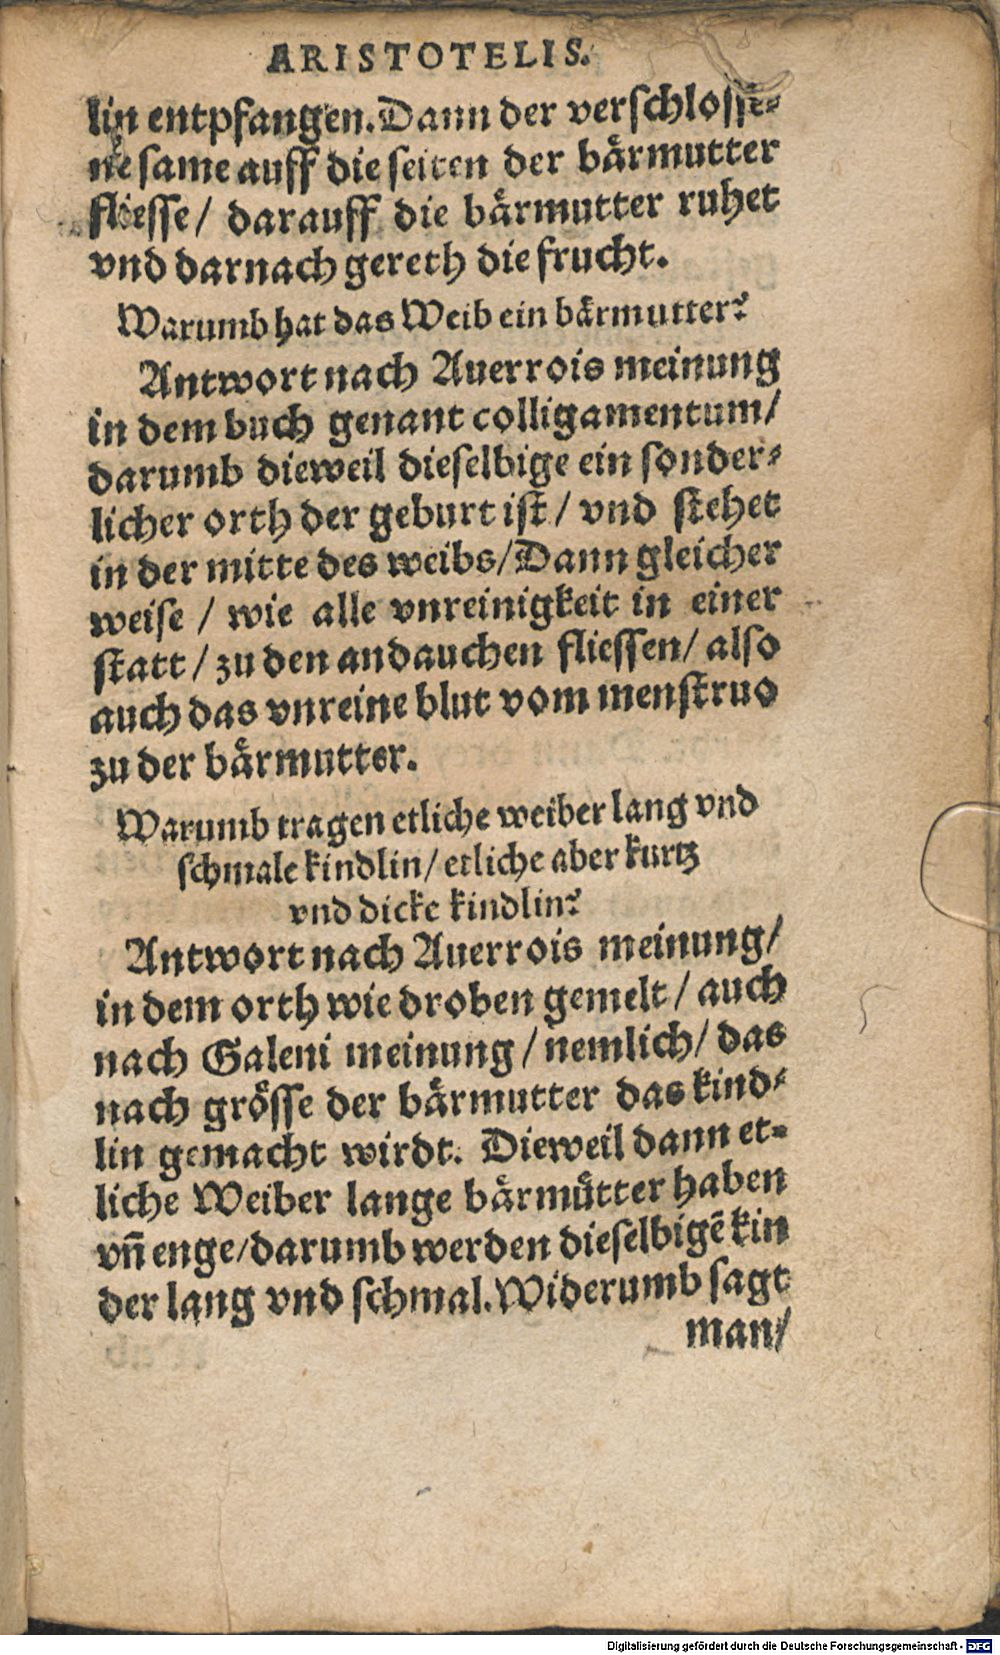 ARISTOTELIS.
lin entpfangen. Dann der verschlosse-
ne same auff die seiten der bårmutter
fliesse / darauff die bårmutter ruhet
vnd darnach gereth die frucht.
Warumb hat das Weib ein bårmutter?
Antwort nach Auerrois meinung
in dem buch genant colligamentum /
darumb dieweil dieselbige ein sonder-
licher orth der geburt ist / vnd stehet
in der mitte des weibs / Dann gleicher
weise / wie alle vnreinigkeit in einer
statt / zu den andauchen fliessen / also
auch das vnreine blut vom menstruo
zu der bårmutter.
Warumb tragen etliche weiber lang vnd
schmale kindlin / etliche aber kurtz
vnd dicke kindlin?
Antwort nach Auerrois meinung /
in dem orth wie droben gemelt / auch
nach Galeni meinung / nemlich / das
nach grösse der bårmutter das kind-
lin gemacht wirdt. Dieweil dann et-
liche Weiber lange bårmůtter haben
vñ enge / darumb werden dieselbigẽ kin
der lang vnd schmal. Widerumb sagt
man /
Digitalisierung gefördert durch die Deutsche Forschungsgemeinschaft - DFG